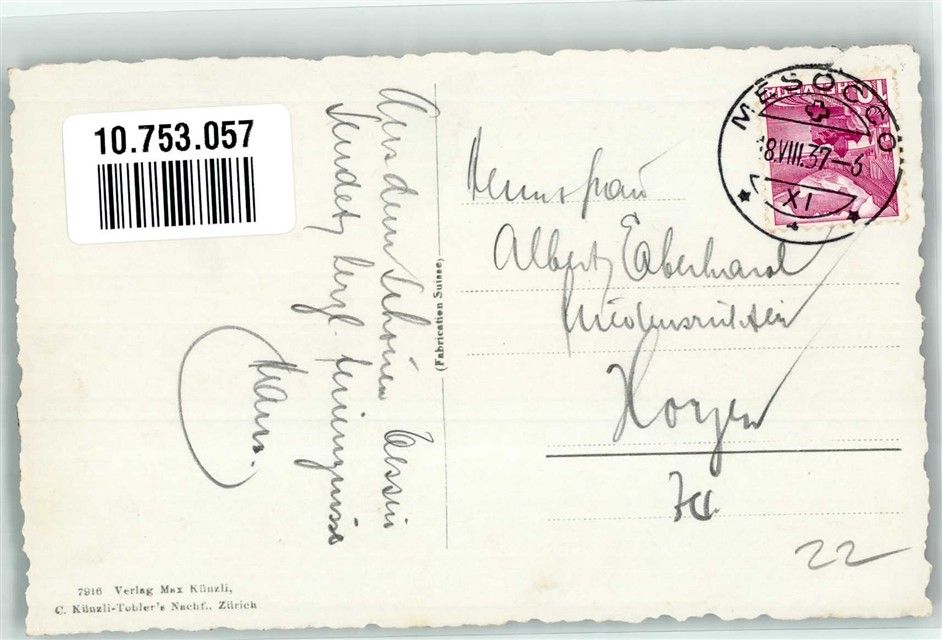 10.753.057
Aus dem schönen Tessin
sendet herzl. Feriengrüsse
Hans.
(Fabrication Suisse)
MESOCCO
18.VIII.37-6
XI
Albert Eberhard
Horgen
22
7916 Verlag Max Künzli,
C. Künzli-Tobler's Nachf., Zürich